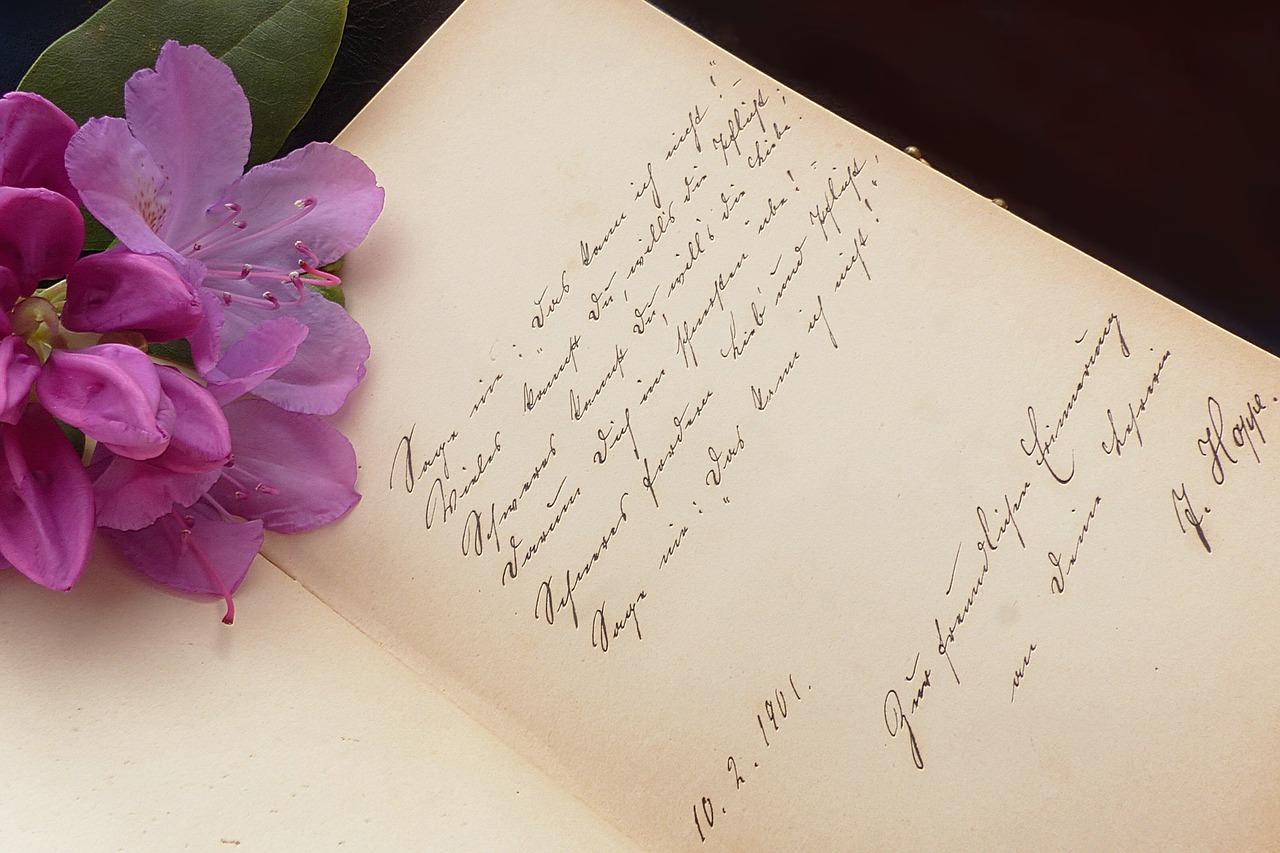 Sage nie: „Das kann ich nicht!“
Vieles kannst Du, will's die Pflicht;
Schweres kannst Du, will's die Liebe.
Darum Dich im Schwersten übe!
Schweres fordern Lieb' und Pflicht;
Sage nie: „Das kann ich nicht!“
Zur freundlichen Erinnerung
an Deine Lehrerin
J. Hoppe.
10. 2. 1901.